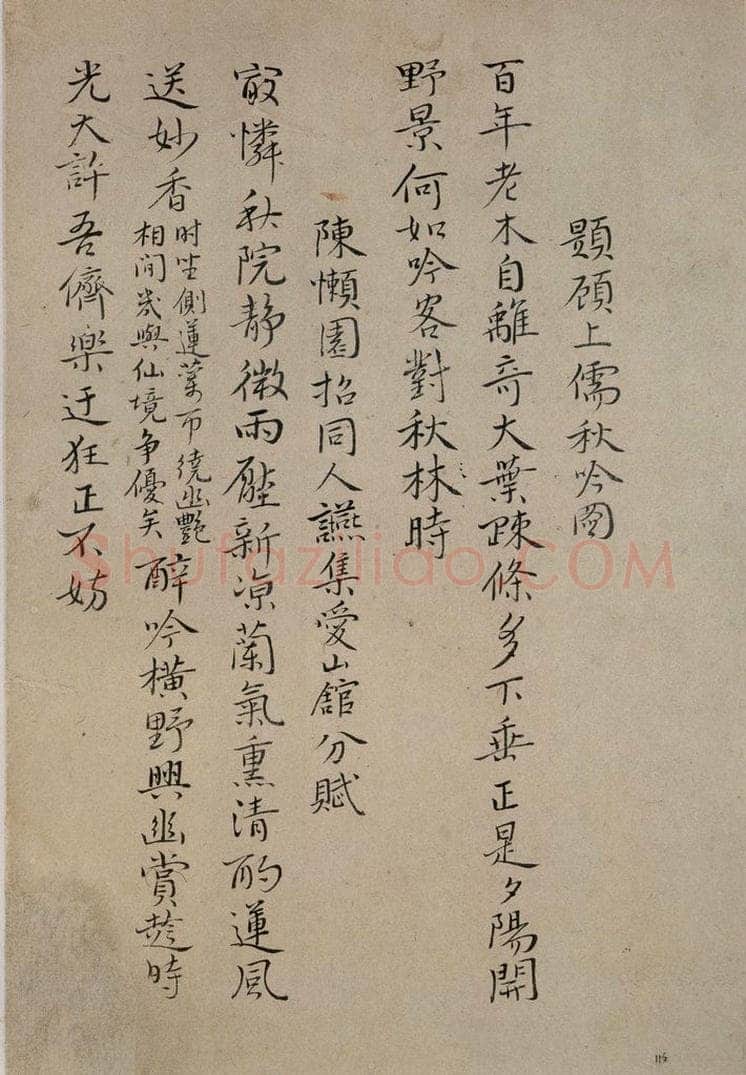 題顾上儒秋吟図
百年老木自離奇大葉踈條多下垂正是夕陽開
野景何如吟客對秋林時
陳懶園招同人讌集愛山館分賦
㝡憐秋院静微雨壓新凉蘭氣熏清酌蓮風
送妙香
时坐側蓮葉帀繞幽艷
相间幾與仙境争優矣
醉吟橫野興幽賞趁時
光大許吾儕樂迂狂正不妨
Shufaziliao.COM
116